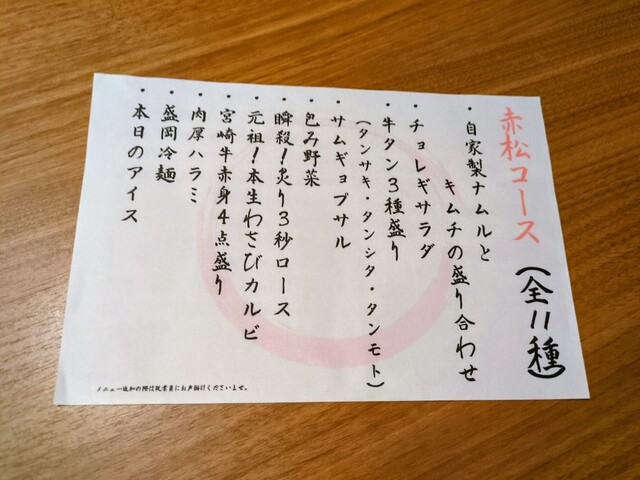 赤松コース（全11種）
・自家製ナムルと
キムチの盛り合わせ
・チョレギサラダ
・牛タン3種盛り
（タンサキ・タンシタ・タンモト）
・サムギョプサル
・包み野菜
・瞬殺！炙り3秒ロース
・元祖！本生わさびカルビ
・宮崎牛赤身4点盛り
・肉厚ハラミ
・盛岡冷麺
・本日のアイス